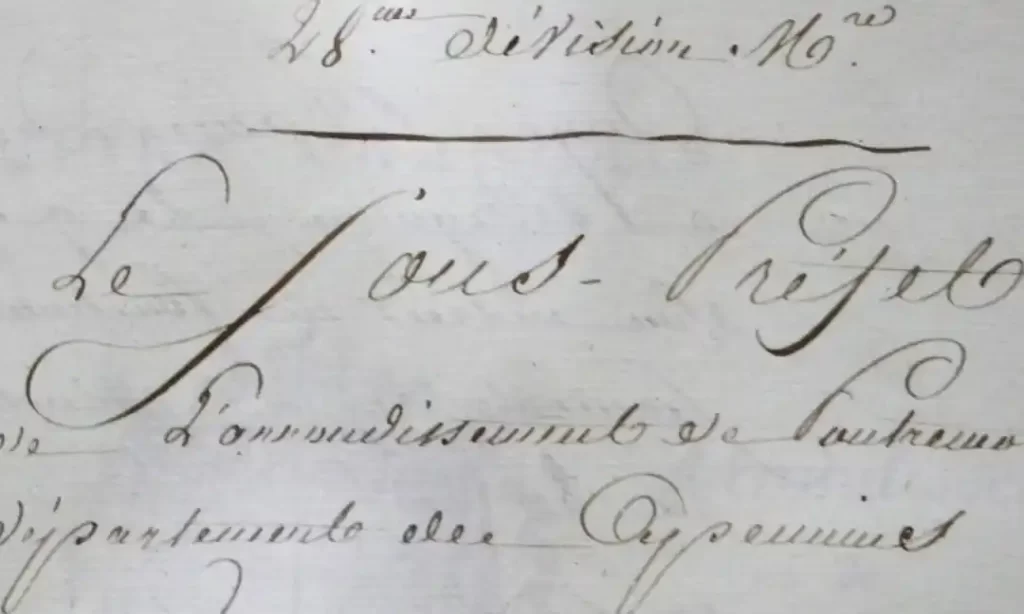 28.me division M.re
Le Sous-Préfet
de L'arrondissement de Pontremo
département des Appennins